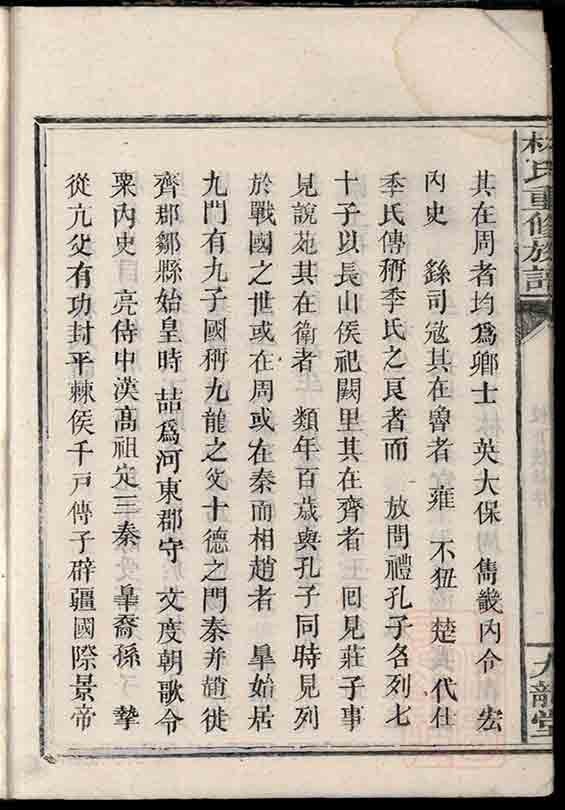 林氏重修族譜
九龍堂
其在周者均爲卿士　英大保　雋畿內令　宏
內史　繇司寇其在魯者　雍　不狃　楚　代仕
季氏傳稱季氏之良者而　放問禮孔子各列七
十子以長山侯祀闕里其在齊者　回見莊子事
見說苑其在衛者　類年百歲與孔子同時見列
於戰國之世或在周或在秦而相趙者　臯始居
九門有九子國稱九龍之父十德之門秦并趙徙
齊郡鄒縣始皇時　喆爲河東郡守　文度朝歌令
粟內史　亮侍中漢高祖定三秦　臯裔孫　摯
從亢父有功封平棘侯千戶傳子辟疆國際景帝